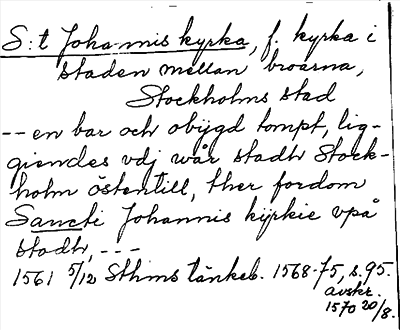 S:t Johannis kyrka, f. kyrka i
staden mellan broarna,
Stockholms stad
-- en bar och obijgd tompt, lig-
giendes vdj wår stadh Stock-
holm östentill, ther fordom
Sancti Johannis kijrkie vpå
stodh, ---
1561 5/12 Sthms tänkeb. 1568-75, s. 95.
avskr.
1570 20/8.